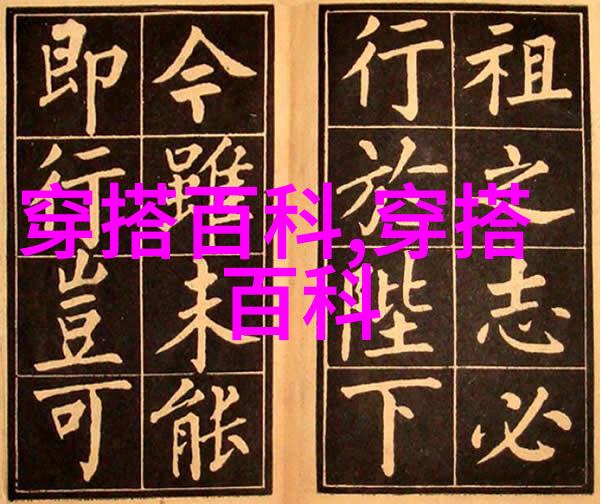 祖之志必
行於陛下
今雖未能
即行豈可
穿搭百科,穿搭
百科